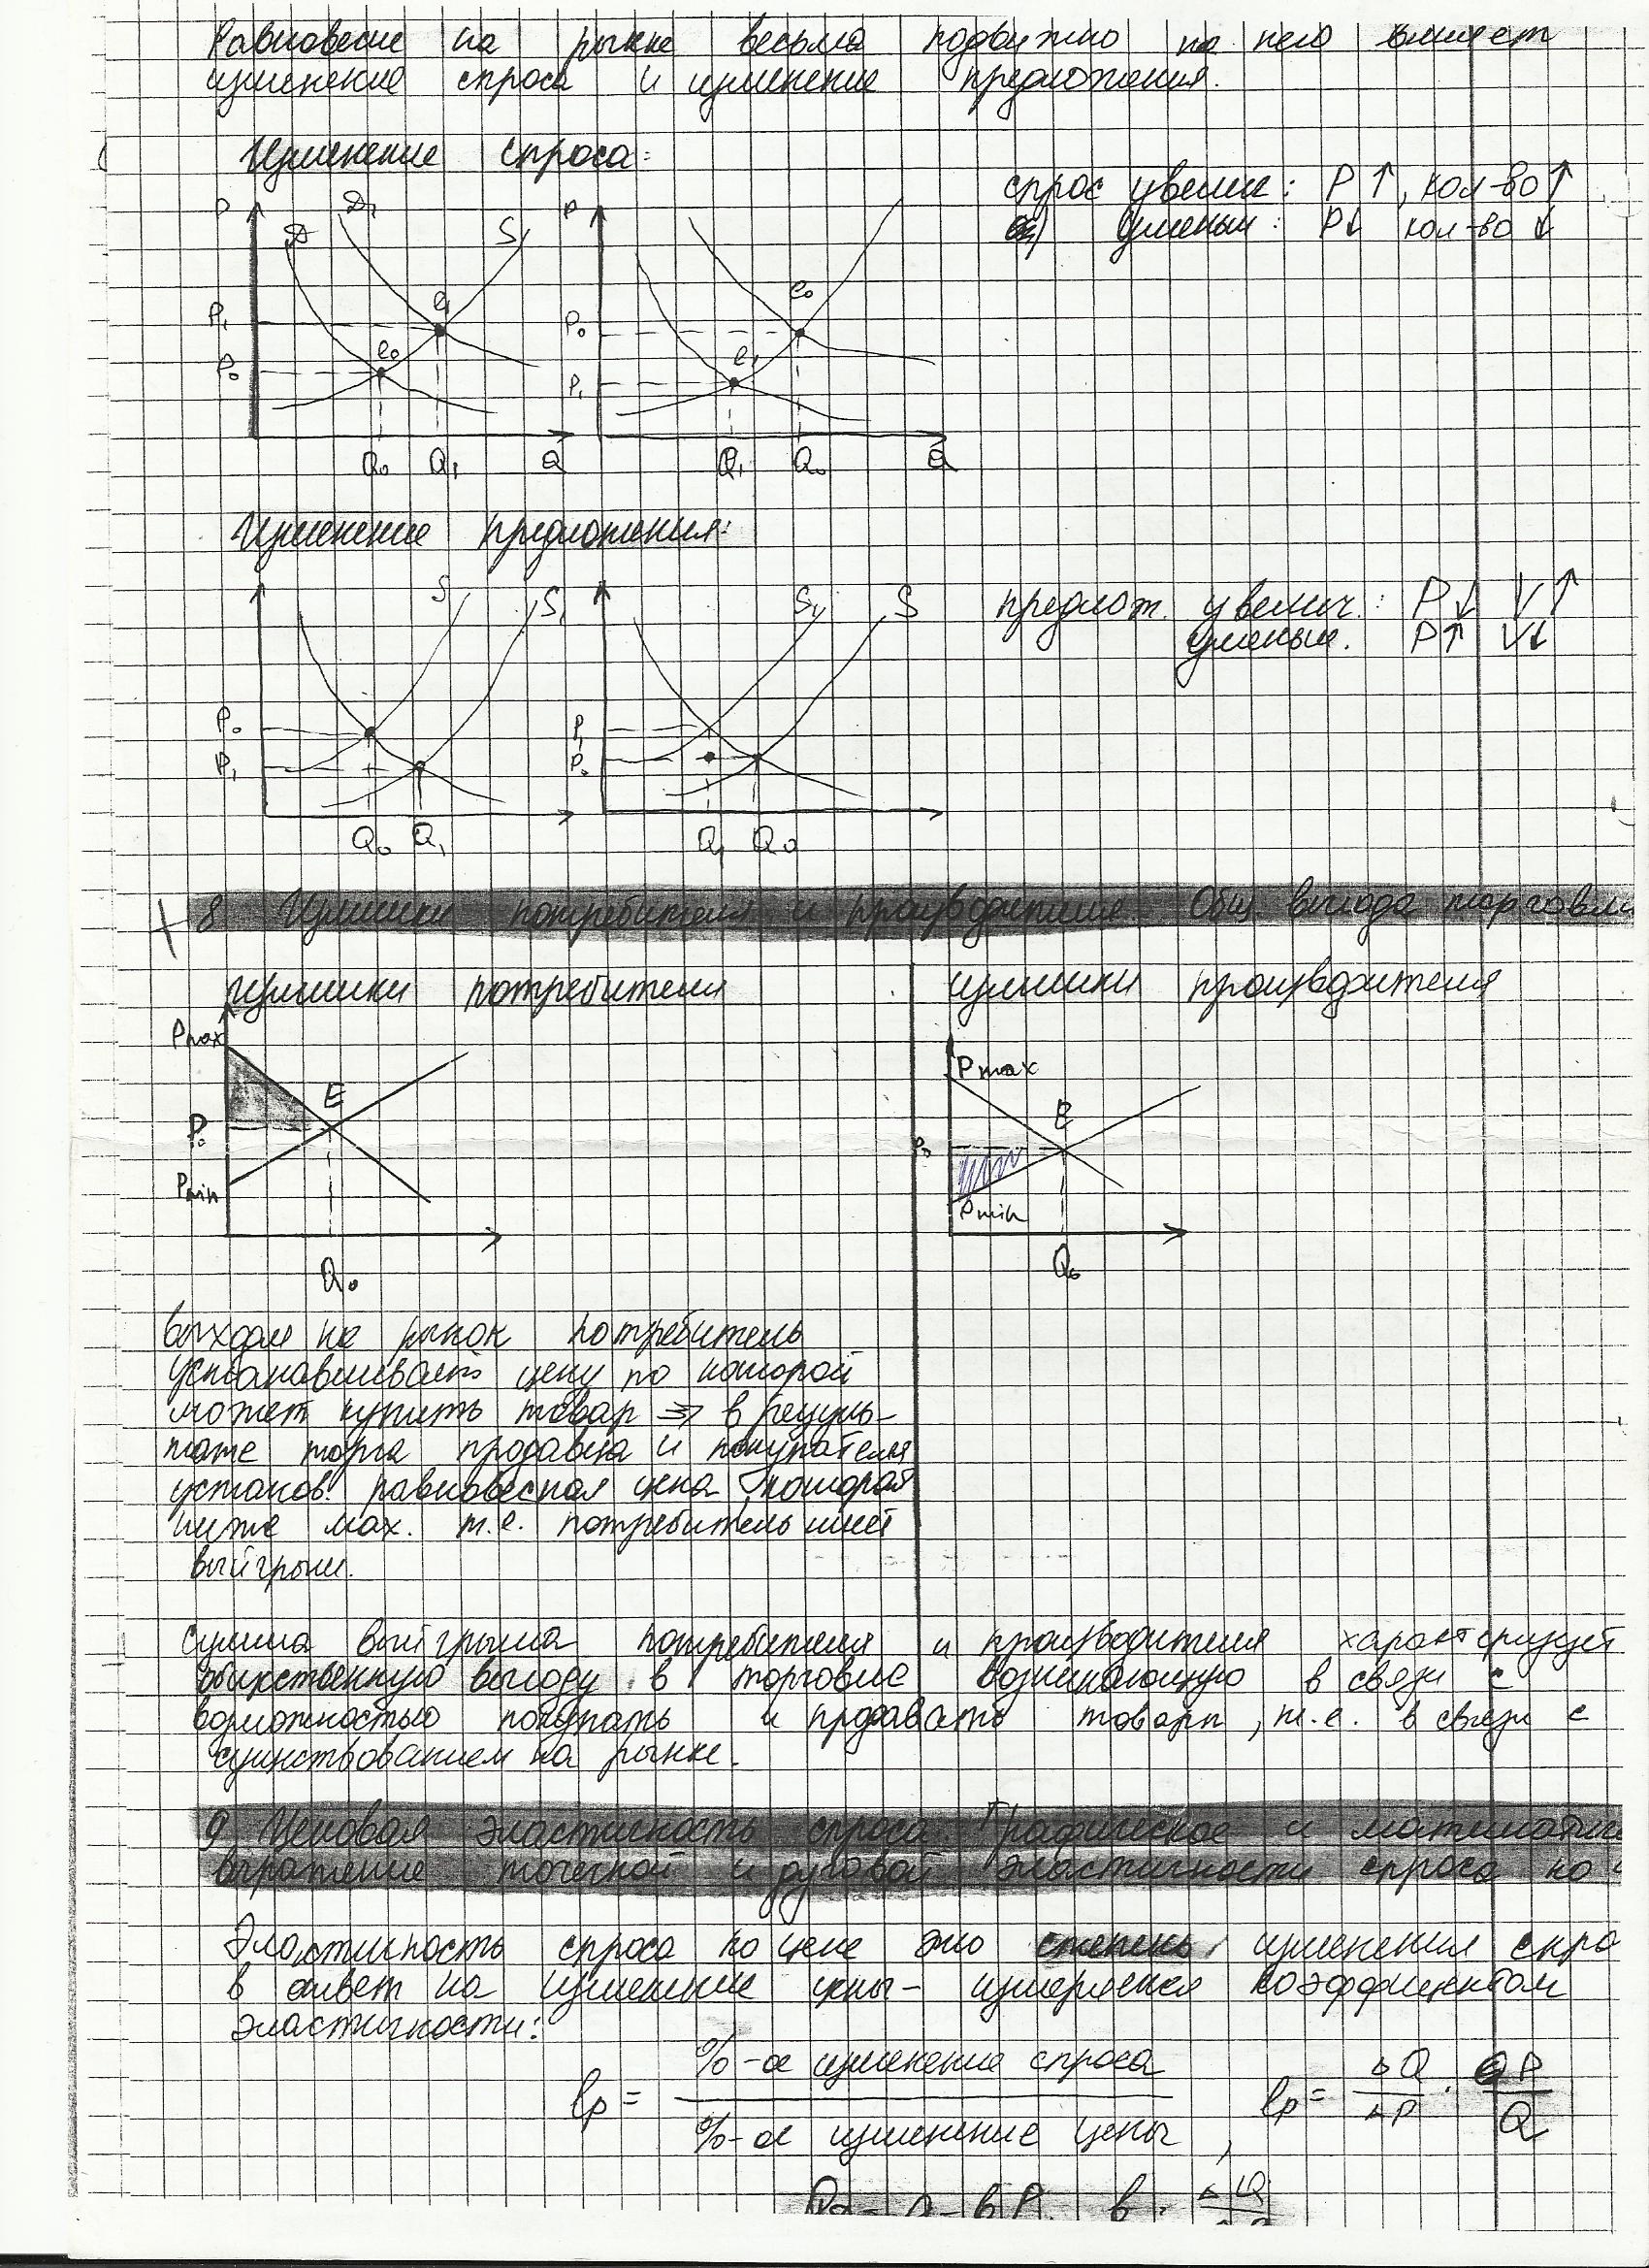 Равновесие на рынке весьма подвижно на него влияет
изменение спроса и изменение предложения.
Изменение спроса:
спрос увелич: P↑, кол-во↑
уменьш: P↓ кол-во ↓
P D D₁ S
P₁ e₁
P₀ e₀
Q₀ Q₁ Q
P
P₀ e₀
P₁ e₁
Q₁ Q₀ Q
Изменение предложения:
предлож. увелич.: P↓ V↑
уменьш. P↑ V↓
S S₁
P₀
P₁
Q₀ Q₁
S₁ S
P₁
P₀
Q₁ Q₀
+ 8 Излишки потребителя и производителя Общ выгода торговли
излишки потребителя
Pmax
E
P₀
Pmin
Q₀
излишки производителя
Pmax
E
P₀
Pmin
Q₀
Выходя на рынок потребитель
устанавливает цену по которой
может купить товар ⇒ в резуль-
тате торга продавца и покупателя
установ. равновесная цена, которая
ниже мах. т.е. потребитель имеет
выйгрыш.
сумма выйгрыша потребителя и производителя характеризует
общественную выгоду в торговле возникающую в связи с
возможностью покупать и продавать товары, т.е. в связи с
существованием на рынке.
9 Ценовая эластичность спроса. Графическое и математиче
выражение точечной и дуговой эластичности спроса по ц
Эластичность спроса по цене это степень изменения спро
в ответ на изменение цены - измеряется коэффициентом
эластичности:
lp = %-ое изменение спроса / %-ое изменение цены , lp = ΔQ/ΔP · P/Q